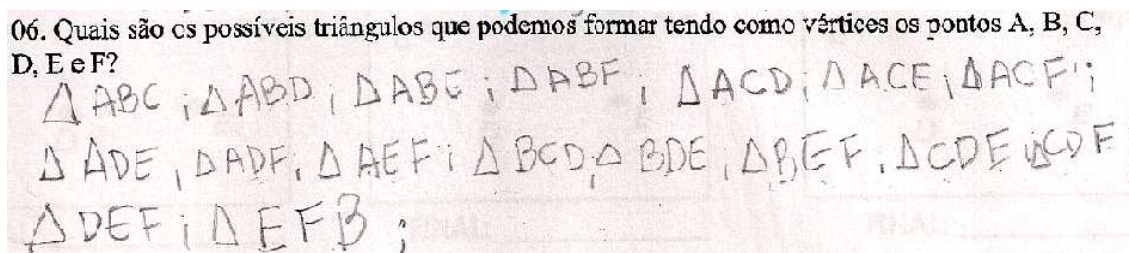 06. Quais são os possíveis triângulos que podemos formar tendo como vértices os pontos A, B, C,
D, E e F?
Δ ABC ; Δ ABD ; Δ ABE ; Δ ABF ; Δ ACD ; Δ ACE ; Δ ACF ;
Δ ADE , Δ ADF , Δ AEF ; Δ BCD , Δ BDE , Δ BEF , Δ CDE ; Δ CDF
Δ DEF ; Δ EFB ;